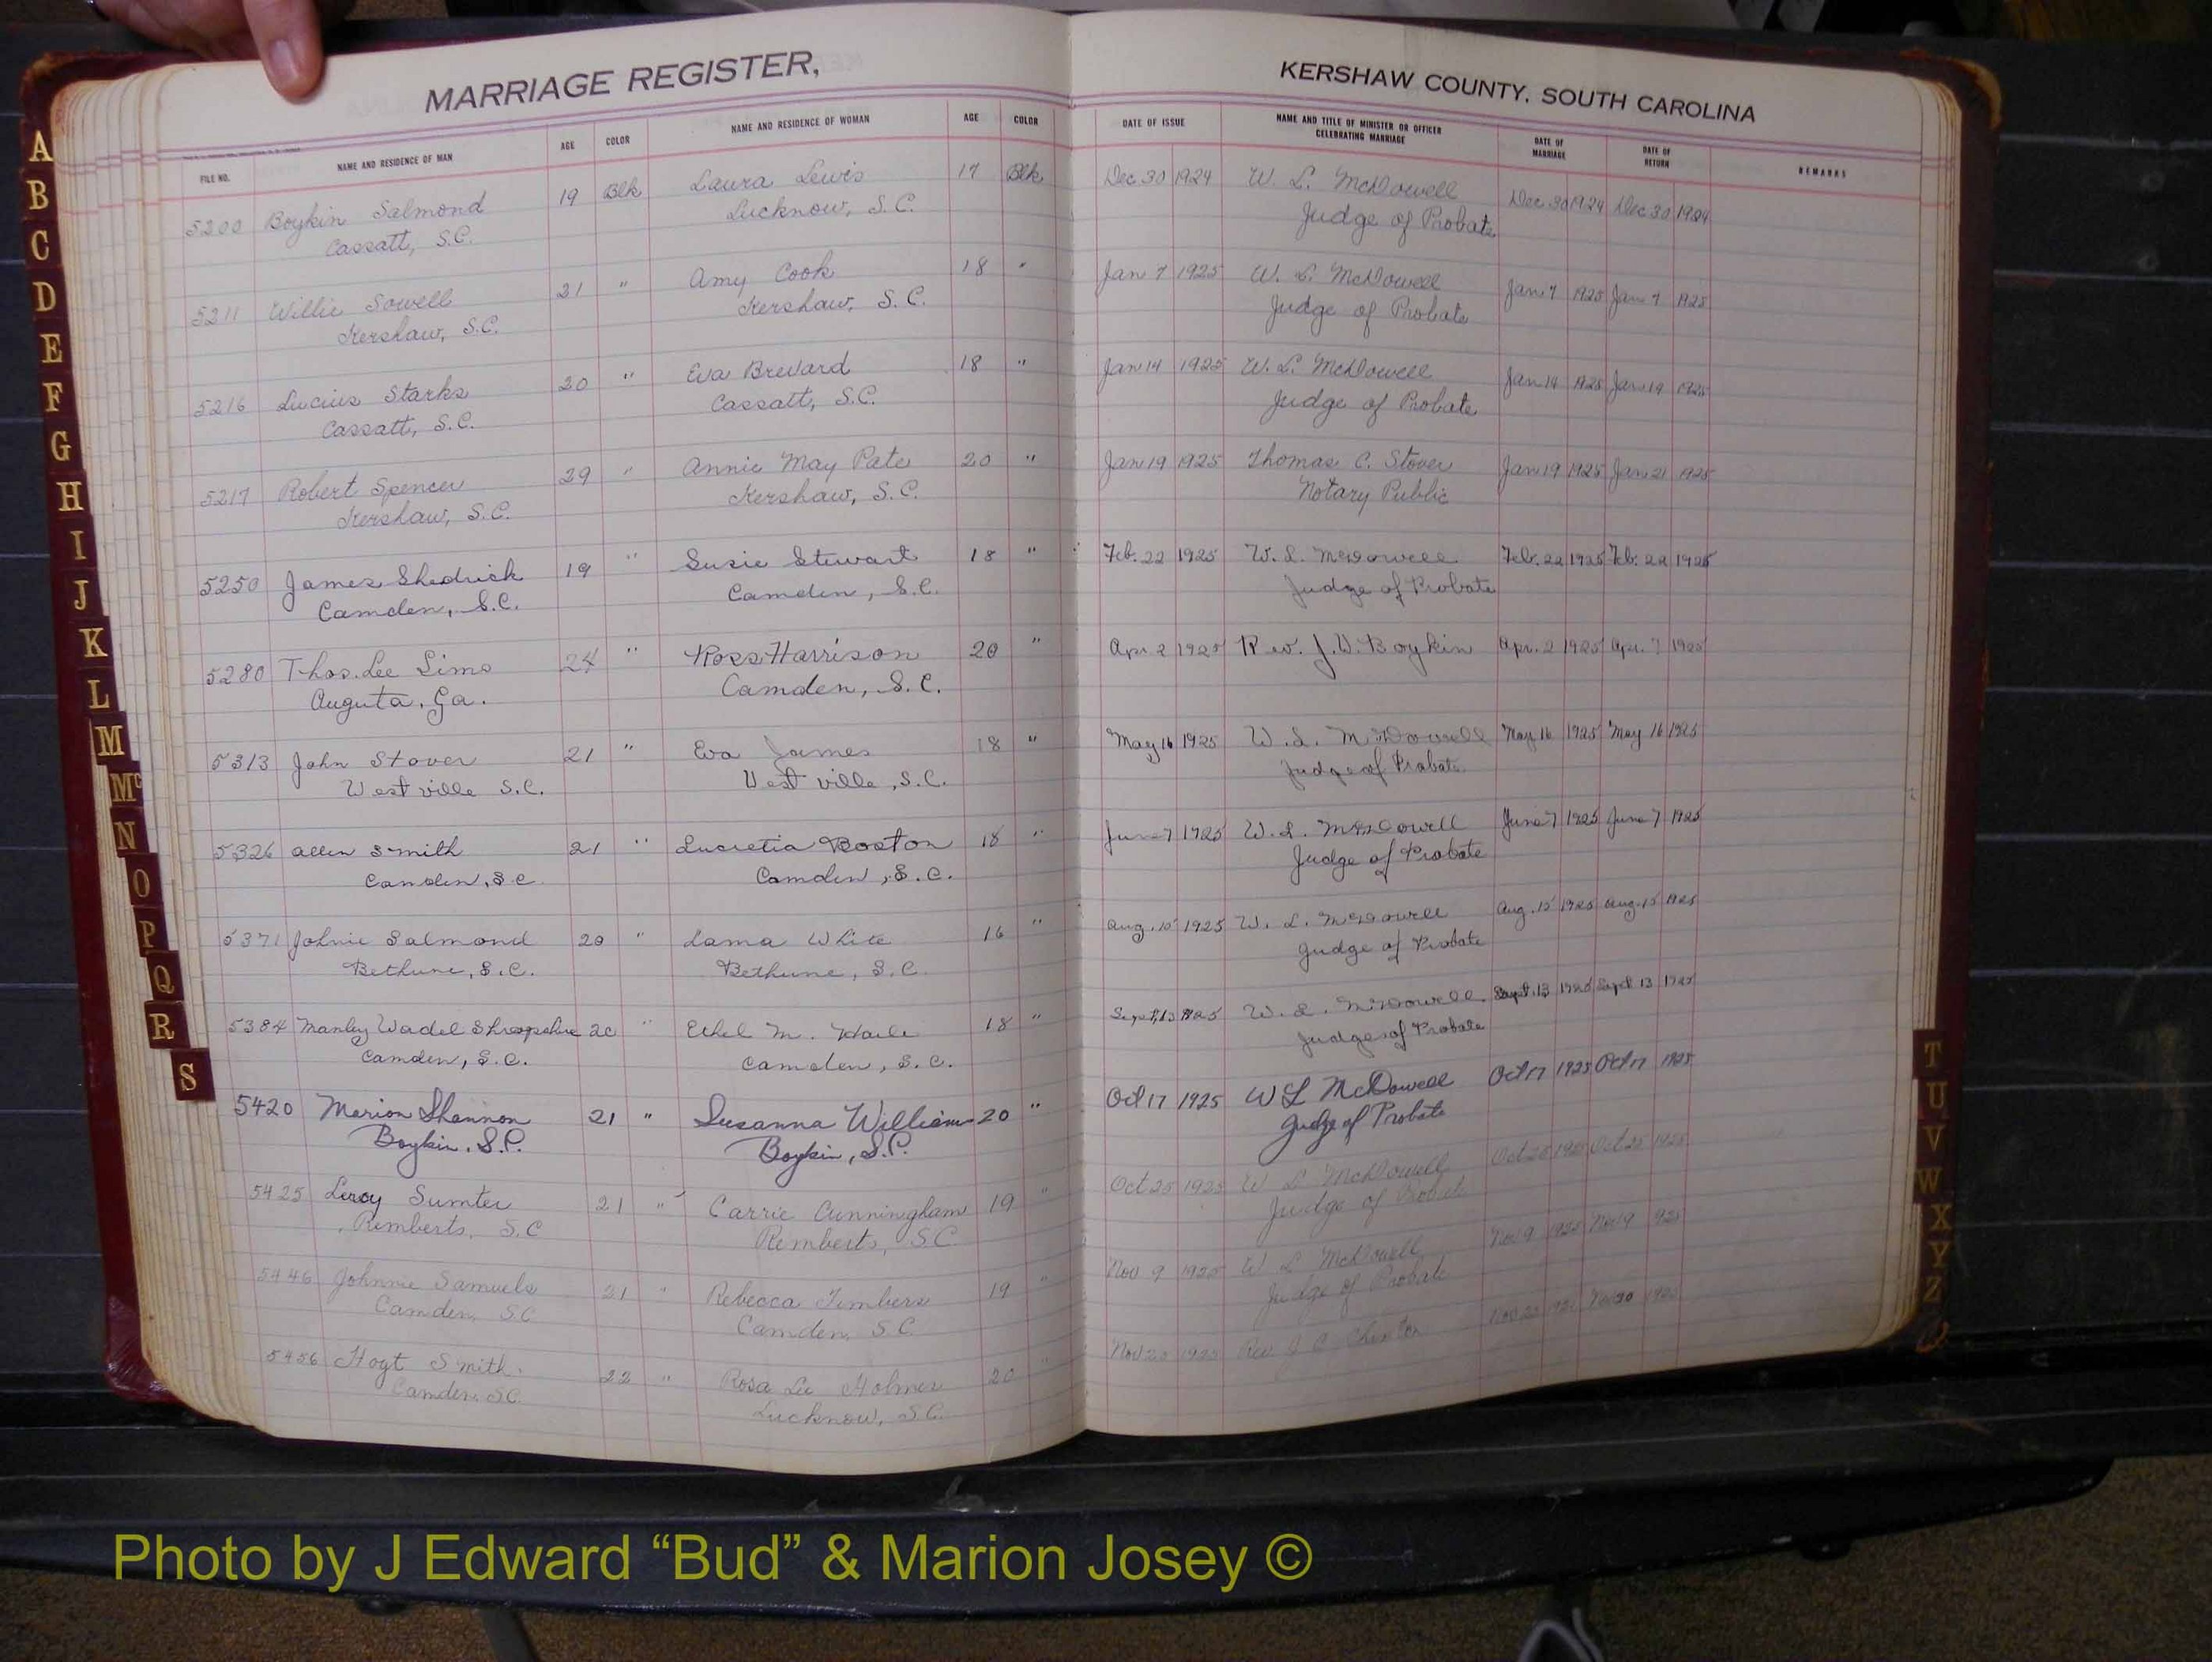 MARRIAGE REGISTER,
KERSHAW COUNTY, SOUTH CAROLINA
FILE NO. NAME AND RESIDENCE OF MAN AGE COLOR NAME AND RESIDENCE OF WOMAN AGE COLOR DATE OF ISSUE NAME AND TITLE OF MINISTER OR OFFICER CELEBRATING MARRIAGE DATE OF MARRIAGE DATE OF RETURN REMARKS
5200 Boykin Salmond 19 Blk Laura Lewis 17 Blk Dec 30 1924 W. L. McDowell Dec 30 1924 Dec 30 1924
Cassatt, S.C. Lucknow, S.C. Judge of Probate
5211 Willie Sowell 21 " Amy Cook 18 " Jan 7 1925 W. L. McDowell Jan 7 1925 Jan 7 1925
Kershaw, S.C. Kershaw, S.C. Judge of Probate
5216 Lucius Starks 20 " Eva Brevard 18 " Jan 14 1925 W. L. McDowell Jan 14 1925 Jan 14 1925
Cassatt, S.C. Cassatt, S.C. Judge of Probate
5217 Robert Spencer 29 " Annie May Pate 20 " Jan 19 1925 Thomas C. Stover Jan 19 1925 Jan 21 1925
Kershaw, S.C. Kershaw, S.C. Notary Public
5250 James Shedrick 19 " Susie Stewart 18 " Feb. 22 1925 W. L. McDowell Feb. 22 1925 Feb. 22 1925
Camden, S.C. Camden, S.C. Judge of Probate
5280 Thos. Lee Sims 24 " Ross Harrison 20 " Apr. 2 1925 Rev. J. W. Boykin Apr. 2 1925 Apr. 7 1925
Auguta, Ga. Camden, S.C.
5313 John Stover 21 " Eva James 18 " May 16 1925 W. L. McDowell May 16 1925 May 16 1925
Westville S.C. Westville, S.C. Judge of Probate
5326 Allen Smith 21 " Lucretia Boston 18 " June 7 1925 W. L. McDowell June 7 1925 June 7 1925
Camden, S.C Camden, S.C. Judge of Probate
5371 Johnie Salmond 20 " Lama White 16 " Aug. 15 1925 W. L. McDowell Aug. 15 1925 Aug. 15 1925
Bethune, S.C. Bethune, S.C. Judge of Probate
5384 Manley Wadel Shropshire 20 " Ethel M. Haile 18 " Sept. 13 1925 W. L. McDowell Sept. 13 1925 Sept 13 1925
Camden, S.C. Camden, S.C. Judge of Probate
5420 Marion Shannon 21 " Susanna Williams 20 " Oct 17 1925 W L McDowell Oct 17 1925 Oct 17 1925
Boykin, S.C. Boykin, S.C. Judge of Probate
5425 Leroy Sumter 21 " Carrie Cunningham 19 " Oct 25 1925 W L McDowell Oct 25 1925 Oct 25 1925
Remberts, S.C Remberts, S.C. Judge of Probate
5446 Johnnie Samuels 21 " Rebecca Timbers 19 " Nov 9 1925 W L McDowell Nov 9 1925 Nov 9 1925
Camden, S.C Camden, S.C. Judge of Probate
5456 Hoyt Smith 22 " Rosa Lee Holmes 20 " Nov 1925 Rev J C Nov Nov 30 1925
Camden, S.C. Lucknow, S.C.
A
B
C
D
E
F
G
H
I
J
K
L
M
Mc
N
O
P
Q
R
S
T
U
V
W
X
Y
Z
Photo by J Edward “Bud” & Marion Josey ©